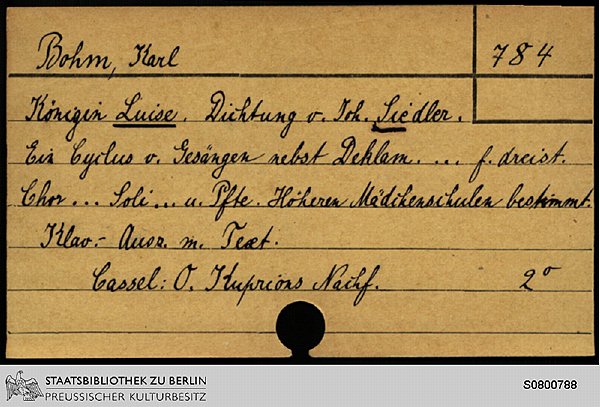 Bohm, Karl 784
Königin Luise. Dichtung v. Joh. Siedler.
Ein Cyclus v. Gesängen nebst Deklam. ... f. dreist.
Chor ... Soli ... u. Pfte. Höheren Mädchenschulen bestimmt.
Klav.- Ausz. m. Text.
Cassel: O. Kuprions Nachf. 2°
STAATSBIBLIOTHEK ZU BERLIN
PREUSSISCHER KULTURBESITZ
S0800788